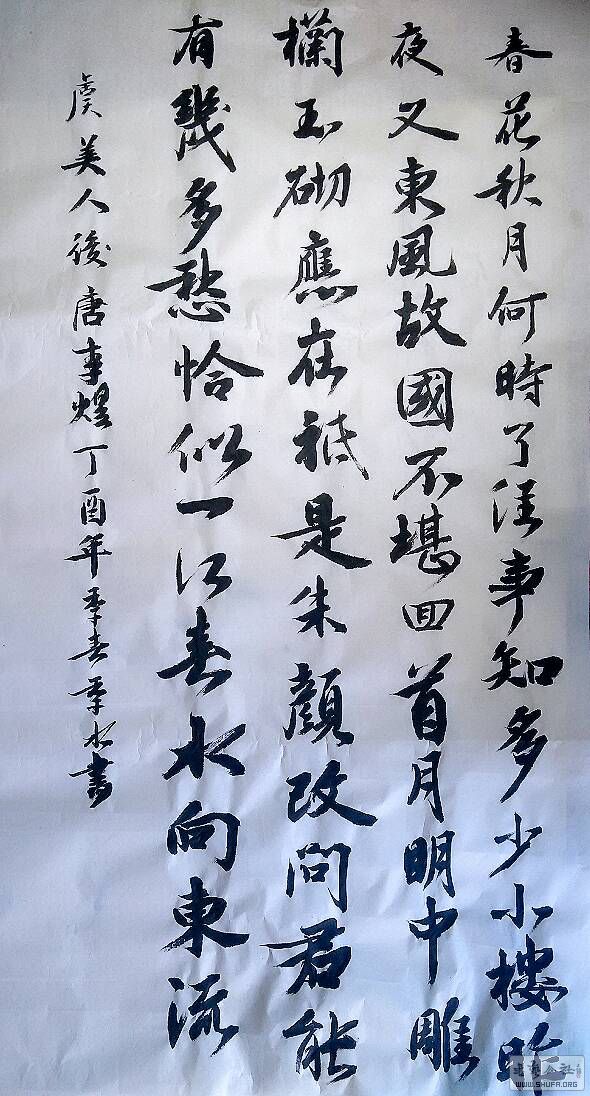 春花秋月何時了往事知多少小樓昨
夜又東風故國不堪回首月明中雕
欄玉砌應在祗是朱顏改問君能
有幾多愁恰似一江春水向東流
虞美人後唐李煜丁酉年季春季水書
WWW.SHUFA.ORG